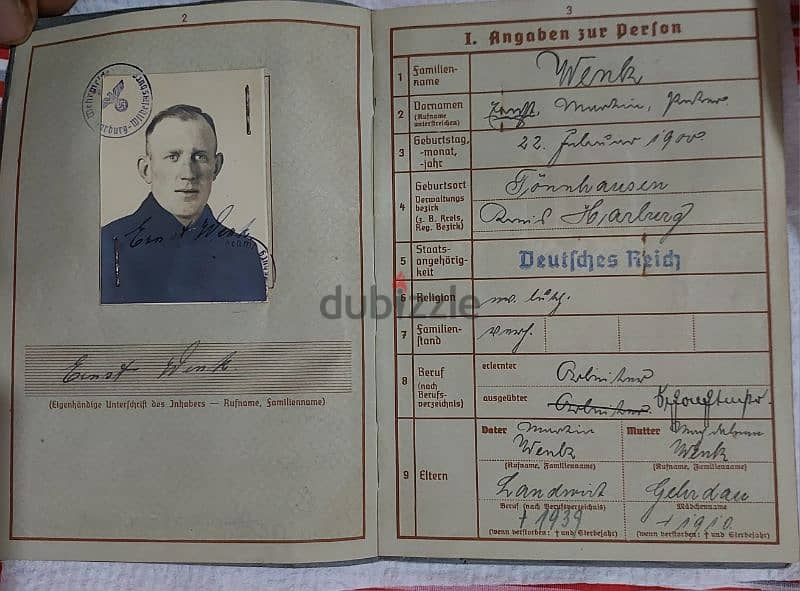 2
Ernst Wenk
Ernst Wenk
(Eigenhändige Unterschrift des Inhabers — Rufname, Familienname)
3
I. Angaben zur Person
1 Familien-
name
Wenk
2 Vornamen
(Rufname
unterstreichen)
Ernst, Martin, Peter
3 Geburtstag,
-monat,
-jahr
22. Februar 1900
4 Geburtsort
Tönnhausen
Verwaltungs
bezirk
(z. B. Kreis,
Reg. Bezirk)
Kreis Harburg
5 Staats-
angehörig-
keit
Deutsches Reich
6 Religion
ev. luth.
7 Familien-
stand
verh.
8 Beruf
(nach
Berufs-
verzeichnis)
erlernter
Arbeiter
ausgeübter
Arbeiter
9 Eltern
Vater Martin
Wenk
(Rufname, Familienname)
Landwirt
Beruf (nach Berufsverzeichnis)
† 1939
(wenn verstorben: † und Sterbejahr)
Mutter
Wenk
(Rufname, Familienname)
Gehrdau
Mädchenname
† 1910
(wenn verstorben: † und Sterbejahr)
dubizzle